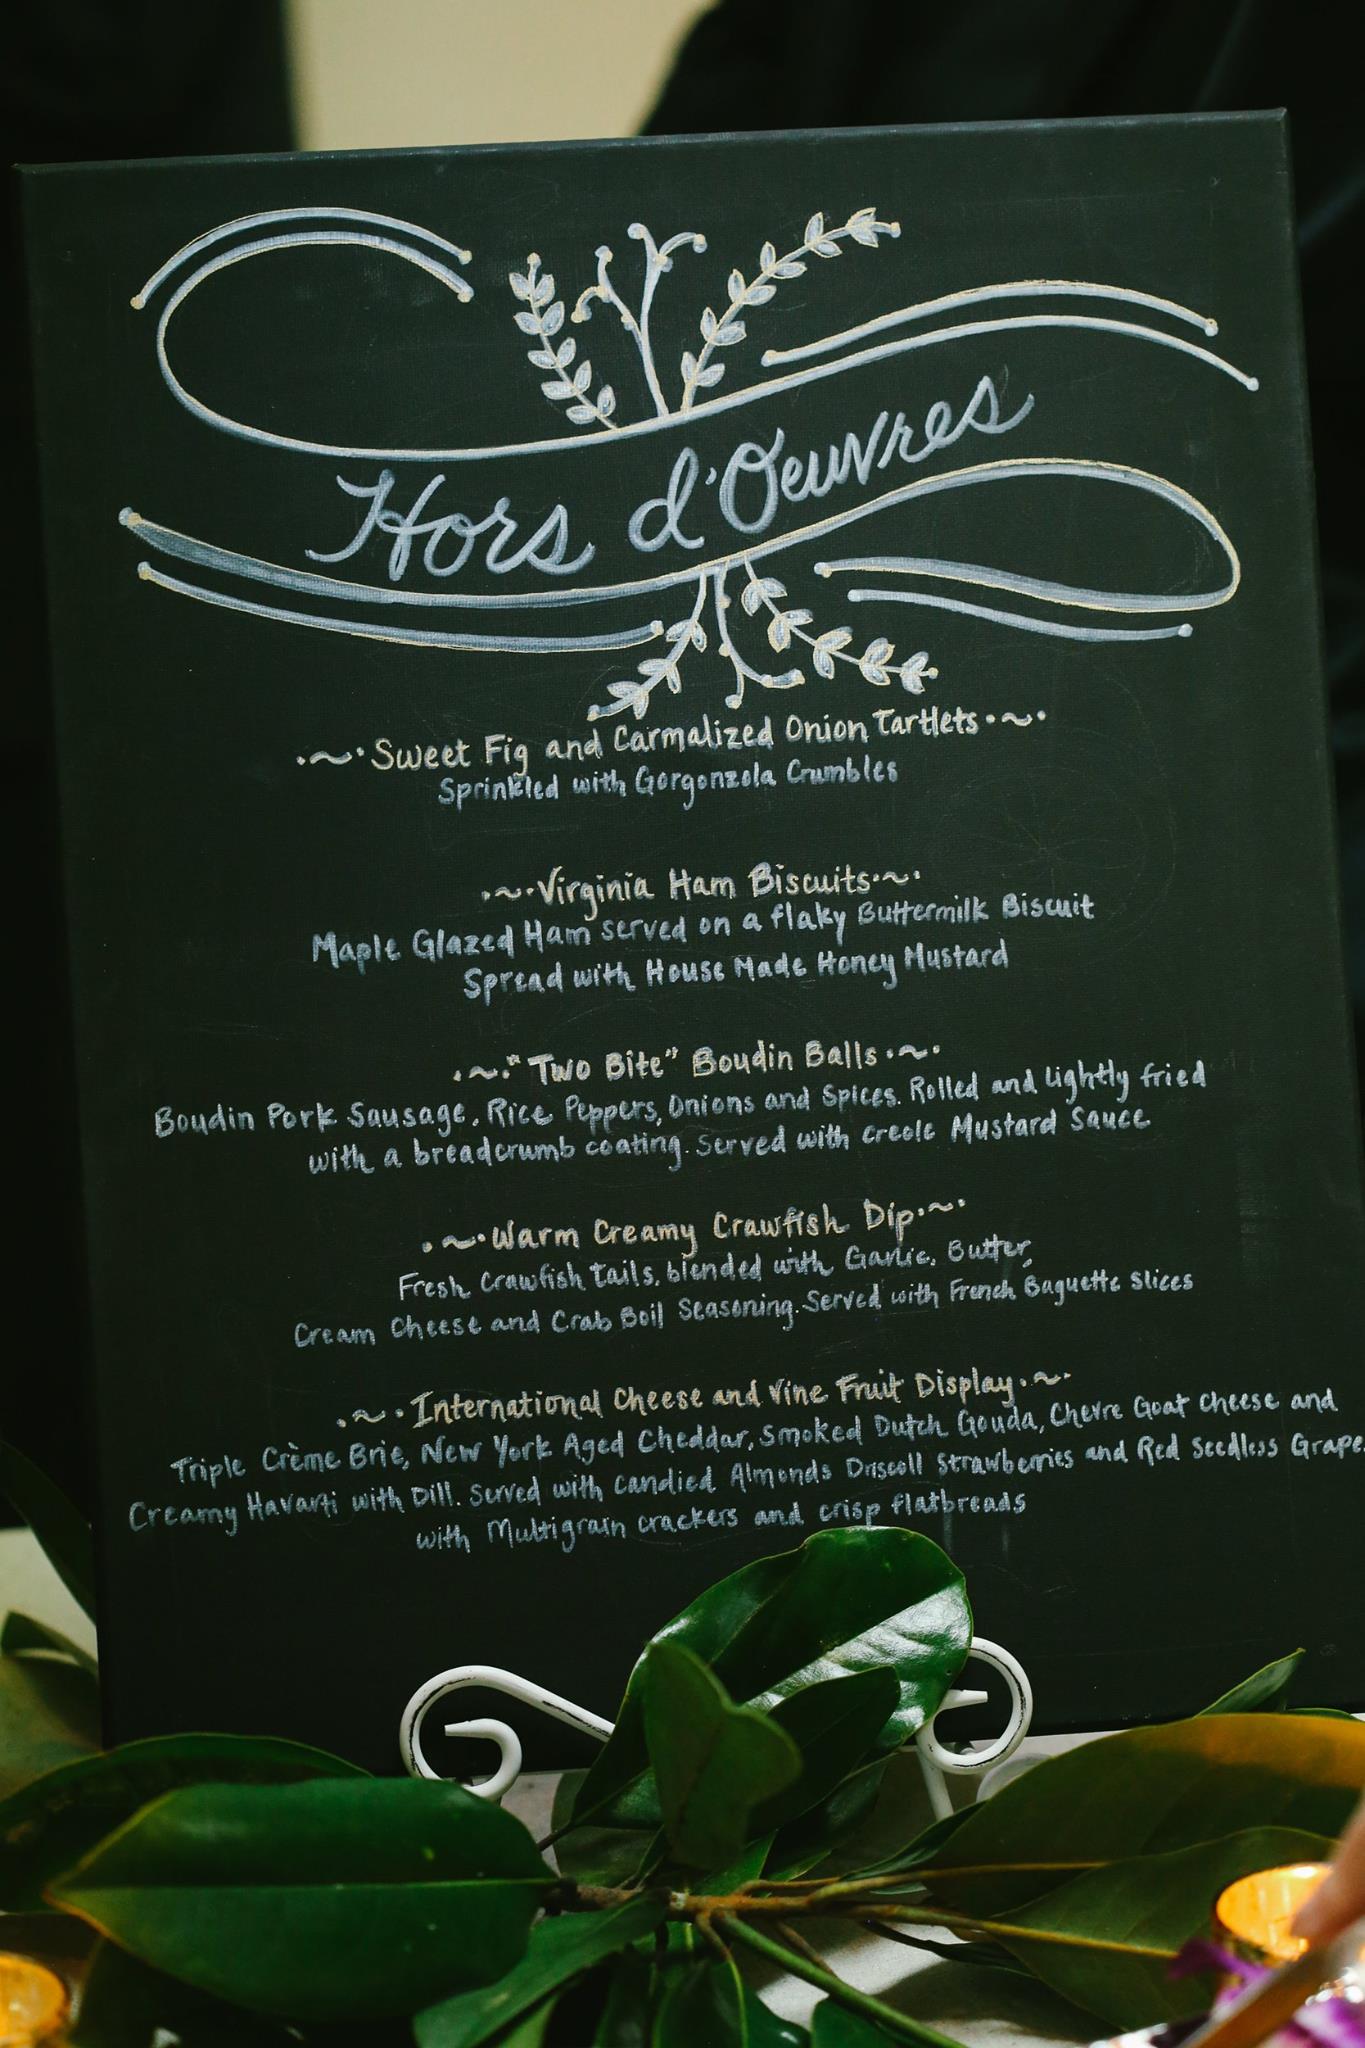 Hors d'Oeuvres
Sweet Fig and Carmalized Onion Tartlets
Sprinkled with Gorgonzola Crumbles
Virginia Ham Biscuits
Maple Glazed Ham served on a flaky Buttermilk Biscuit
Spread with House Made Honey Mustard
"Two Bite" Boudin Balls
Boudin Pork Sausage, Rice Peppers, Onions and Spices. Rolled and lightly fried
with a breadcrumb coating. Served with creole Mustard Sauce
Warm Creamy Crawfish Dip
Fresh Crawfish Tails, blended with Garlic, Butter,
Cream Cheese and Crab Boil Seasoning. Served with French Baguette Slices
International Cheese and Vine Fruit Display
Triple Crème Brie, New York Aged Cheddar, Smoked Dutch Gouda, Chevre Goat Cheese and
Creamy Havarti with Dill. Served with Candied Almonds Driscoll Strawberries and Red Seedless Grape
with Multigrain crackers and crisp flatbreads